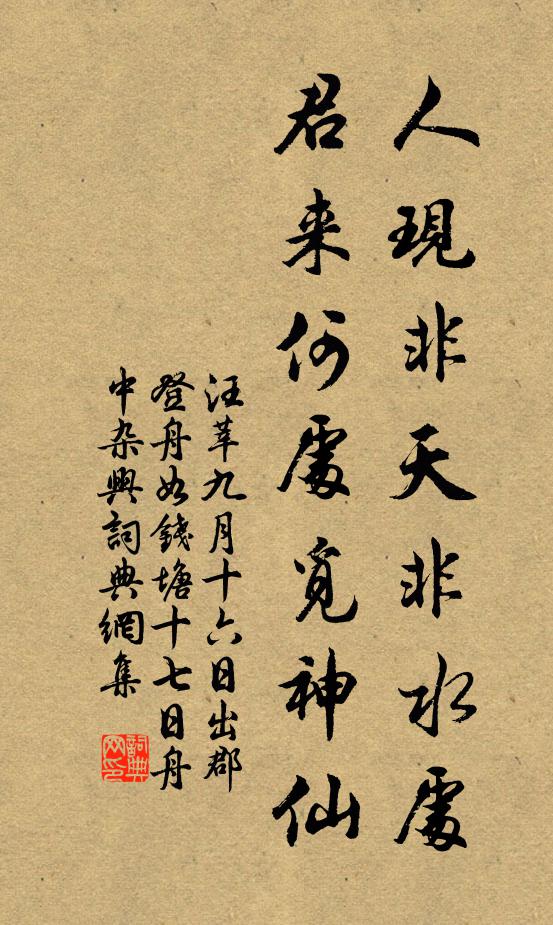 人現非天非水處
君来何處覓神仙
汪莘九月十六日出郡
登舟如錢塘十七日舟
中杂興詞典網集
詞典
网印